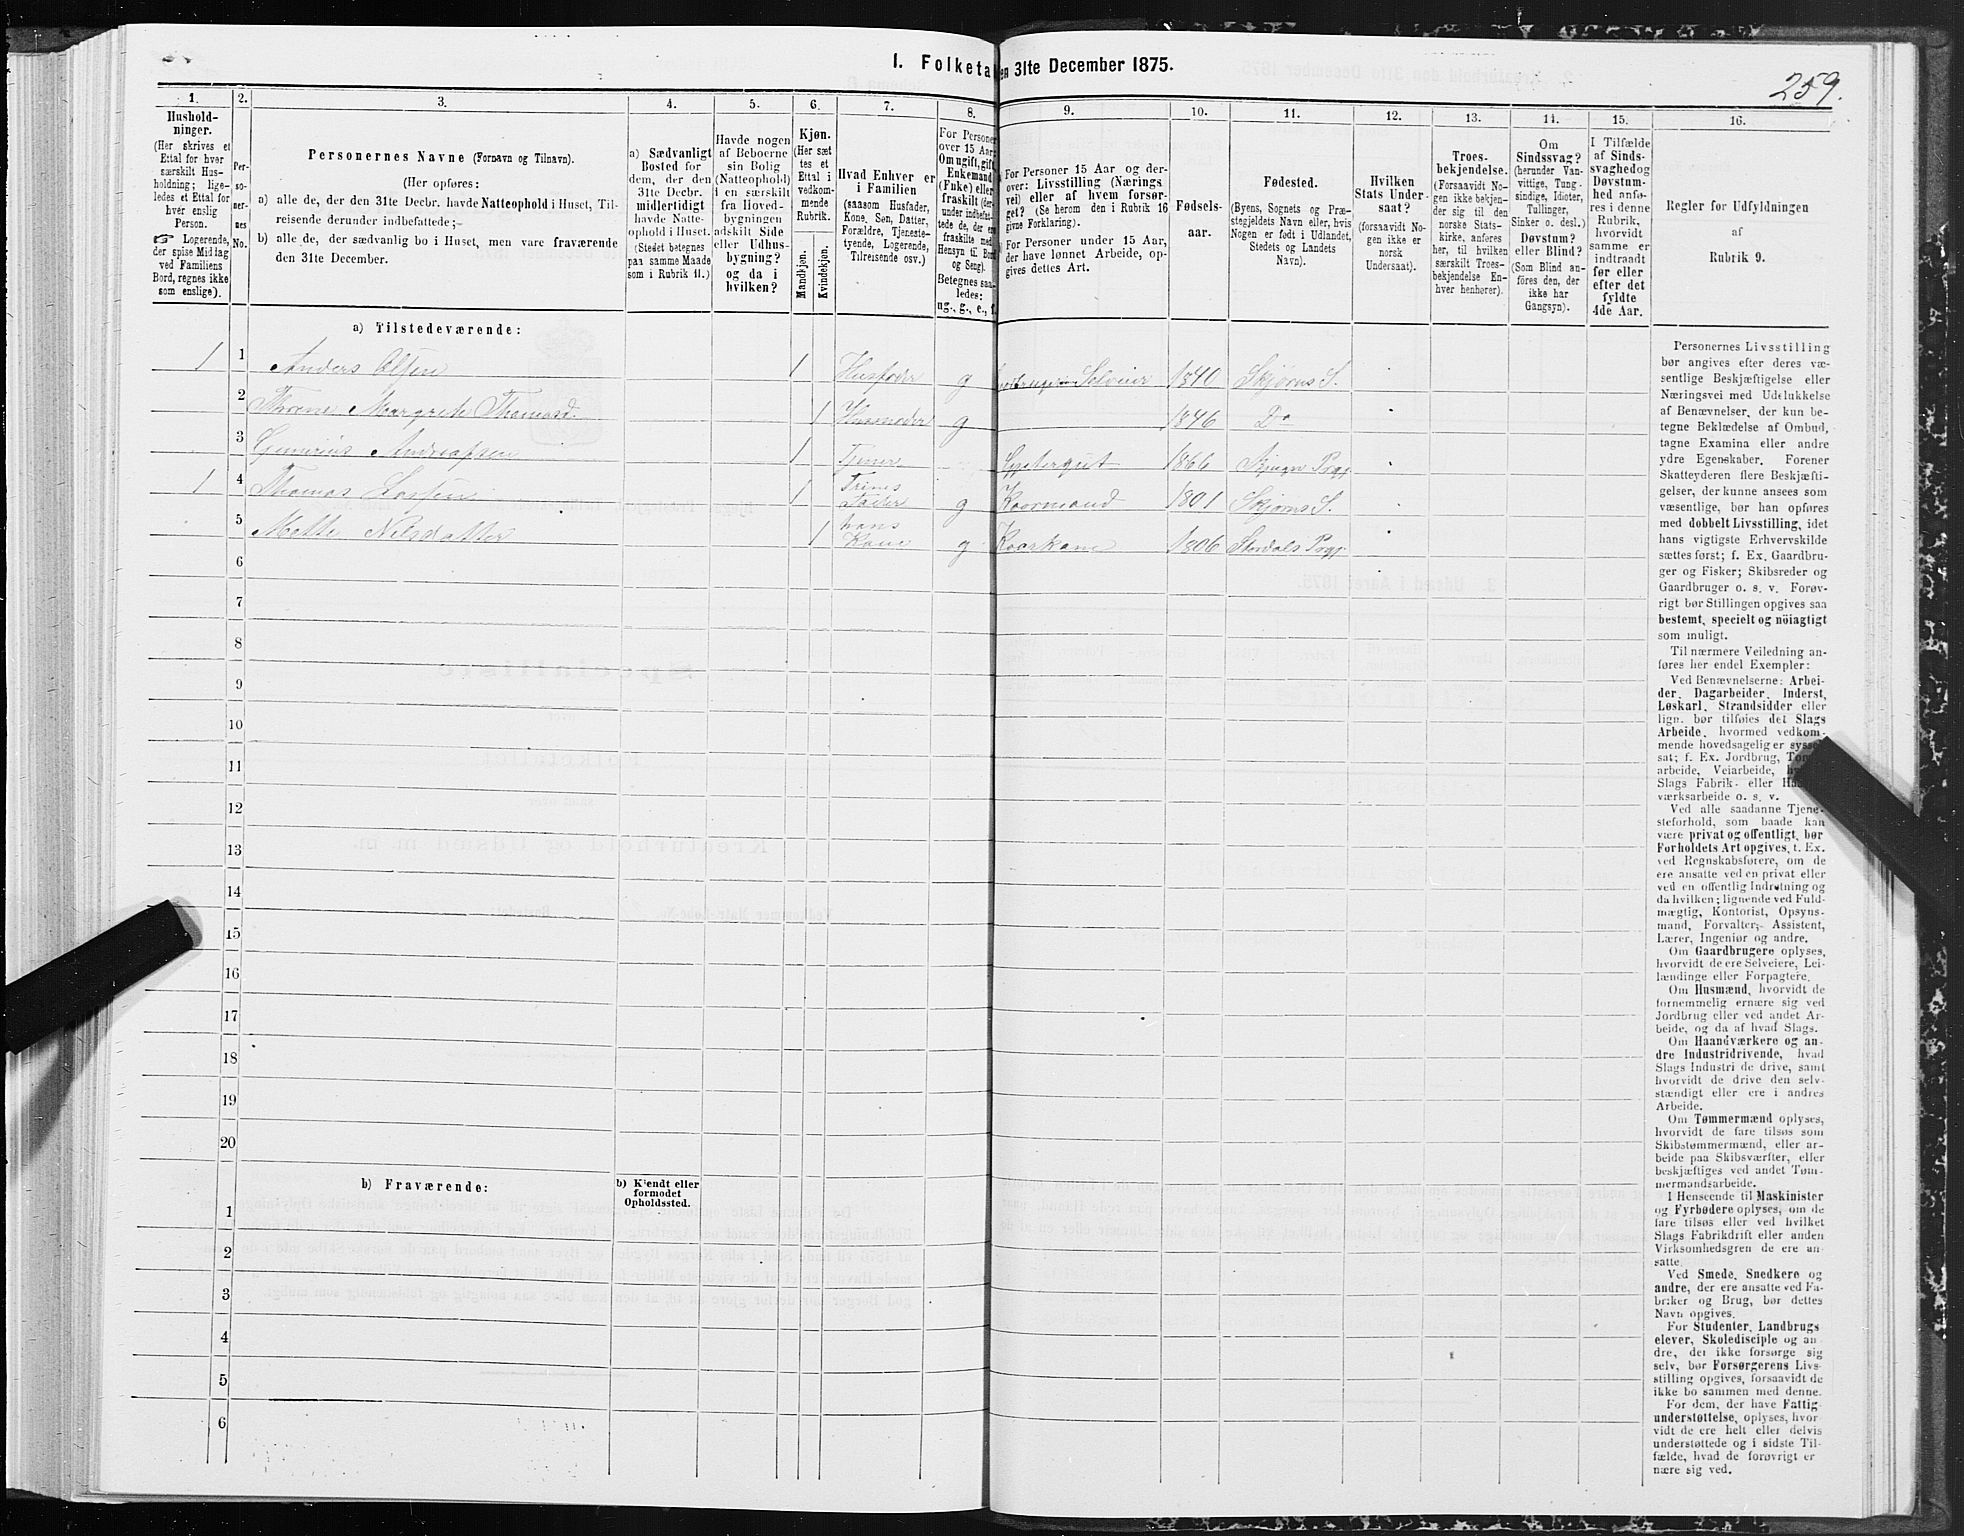 259.
I. Folketa
en 31te December 1875.
1. 2. 3. 4. 5. 6. 7. 8. 9. 10. 11. 12. 13. 14. 15. 16.
Hushold-
ninger.
(Her skrives et
Ettal for hver
særskilt Hus-
holdning; lige-
ledes et Ettal for
hver enslig
Person.
☞ Logerende,
der spise Middag
ved Familiens
Bord, regnes ikke
som enslige).
Per-
so-
ner-
nes
No.
Personernes Navne (Fornavn og Tilnavn).
(Her opføres:
a) alle de, der den 31te Decbr. havde Natteophold i Huset, Til-
reisende derunder indbefattede;
b) alle de, der sædvanlig bo i Huset, men vare fraværende
den 31te December.
a) Sædvanligt
Bosted for
dem, der den
31te Decbr.
midlertidigt
havde Natte-
ophold i Huset.
(Stedet betegnes
paa samme Maade
som i Rubrik 11.)
Havde nogen
af Beboerne
sin Bolig
(Natteophold)
i en særskilt
fra Hoved-
bygningen
adskilt Side
eller Udhus-
bygning?
og da i
hvilken?
Kjøn.
(Her sæt
tes et
Ettal i
vedkom-
mende
Rubrik.
Mandkjøn.
Kvindekjøn.
Hvad Enhver er
i Familien
(saasom Husfader,
Kone, Søn, Datter,
Forældre, Tjeneste-
tyende, Logerende,
Tilreisende osv.)
For Personer
over 15 Aar:
Om ugift, gift,
Enkemand
(Enke) eller
fraskilt (der-
under indbefat-
tede de, der ere
fraskilte med
Hensyn til Bord
og Seng).
Betegnes saa-
ledes:
ug., g., e., f.
For Personer 15 Aar og der-
over: Livsstilling (Nærings
vei) eller af hvem forsør-
get? (Se herom den i Rubrik 16
givne Forklaring).
For Personer under 15 Aar,
der have lønnet Arbeide, op-
gives dettes Art.
Fødsels-
aar.
Fødested.
(Byens, Sognets og Præ-
stegjeldets Navn eller, hvis
Nogen er født i Udlandet,
Stedets og Landets
Navn).
Hvilken
Stats Under-
saat?
(forsaavidt No-
gen ikke er
norsk
Undersaat).
Troes-
bekjendelse.
(Forsaavidt No-
gen ikke bekjen-
der sig til den
norske Stats-
kirke, anføres
her, til hvilken
særskilt Troes-
bekjendelse En-
hver henhører).
Om
Sindssvag?
(herunder Van-
vittige, Tung-
sindige, Idioter,
Tullinger,
Sinker o. desl.)
Døvstum?
eller Blind?
(Som Blind an-
føres den, der
ikke har
Gangsyn).
I Tilfælde
af Sinds-
svaghed og
Døvstum-
hed anfø-
res i denne
Rubrik,
hvorvidt
samme er
indtraadt
før eller
efter det
fyldte
4de Aar.
Regler for Udfyldningen
af
Rubrik 9.
a) Tilstedeværende:
1 1 Anders Olsen 1 Husfader g Selveier 1840 Skjørns S.
2 Margrete Thomasd. 1 Husmoder g 1846 Do
3 Andreassen 1 Tjener 1866
1 4 Thomas Larsen 1 Trines Fader g Kaarmand 1801 Skjørns S.
5 Mette Nilsdatter 1 hans Kone g Kaarkone 1806 Stordals Prgj.
6
7
8
9
10
11
12
13
14
15
16
17
18
19
20
b) Fraværende:
b) Kjendt eller
formodet
Opholdssted.
1
2
3
4
5
6
Personernes Livsstilling
bør angives efter deres væ-
sentlige Beskjæftigelse eller
Næringsvei med Udelukkelse
af Benævnelser, der kun be-
tegne Beklædelse af Ombud,
tagne Examina eller andre
ydre Egenskaber. Forener
Skatteyderen flere Beskjæfti-
gelser, der kunne ansees som
væsentlige, bør han opføres
med dobbelt Livsstilling, idet
hans vigtigste Erhvervskilde
sættes først; f. Ex. Gaardbru-
ger og Fisker; Skibsreder og
Gaardbruger o. s. v. Forøv-
rigt bør Stillingen opgives saa
bestemt, specielt og nöiagtigt
som muligt.
Til nærmere Veiledning an-
føres her endel Exempler:
Ved Benævnelserne: Arbei-
der, Dagarbeider, Inderst,
Løskarl, Strandsidder eller
lign. bør tilføies det Slags
Arbeide, hvormed vedkom-
mende hovedsagelig er syssel
sat; f. Ex. Jordbrug,
arbeide, Veiarbeide,
Slags Fabrik- eller
værksarbeide o. s. v.
Ved alle saadanne Tjene-
steforhold, som baade kan
være privat og offentligt, bør
Forholdets Art opgives, t. Ex.
ved Regnskabsførere, om de
ere ansatte ved en privat eller
ved en offentlig Indretning og
da hvilken; lignende ved Fuld-
mægtig, Kontorist, Opsyns-
mand, Forvalter, Assistent,
Lærer, Ingeniør og andre.
Om Gaardbrugere oplyses,
hvorvidt de ere Selveiere, Lei-
lændinge eller Forpagtere.
Om Husmænd, hvorvidt de
fornemmelig ernære sig ved
Jordbrug eller ved andet Ar-
beide, og da af hvad Slags.
Om Haandværkere og an-
dre Industridrivende, hvad
Slags Industri de drive, samt
hvorvidt de drive den selv-
stændigt eller ere i andres
Arbeide.
Om Tømmermænd oplyses,
hvorvidt de fare tilsøs som
Skibstømmermænd, eller ar-
beide paa Skibsværfter, eller
beskjæftiges ved andet Tøm-
mermandsarbeide.
I Henseende til Maskinister
og Fyrbødere oplyses, om de
fare tilsøs eller ved hvilket
Slags Fabrikdrift eller anden
Virksomhedsgren de ere an-
satte.
Ved Smede, Snedkere og
andre, der ere ansatte ved Fa-
briker og Brug, bør dettes
Navn opgives.
For Studenter, Landbrugs
elever, Skoledisciple og an-
dre, der ikke forsørge sig
selv, bør Forsørgerens Livs-
stilling opgives, forsaavidt de
ikke bo sammen med denne.
For dem, der have Fattig-
understøttelse, oplyses, hvor-
vidt de ere helt eller delvis
understøttede og i sidste Til-
fælde, hvad de forøvrigt er
nære sig ved.